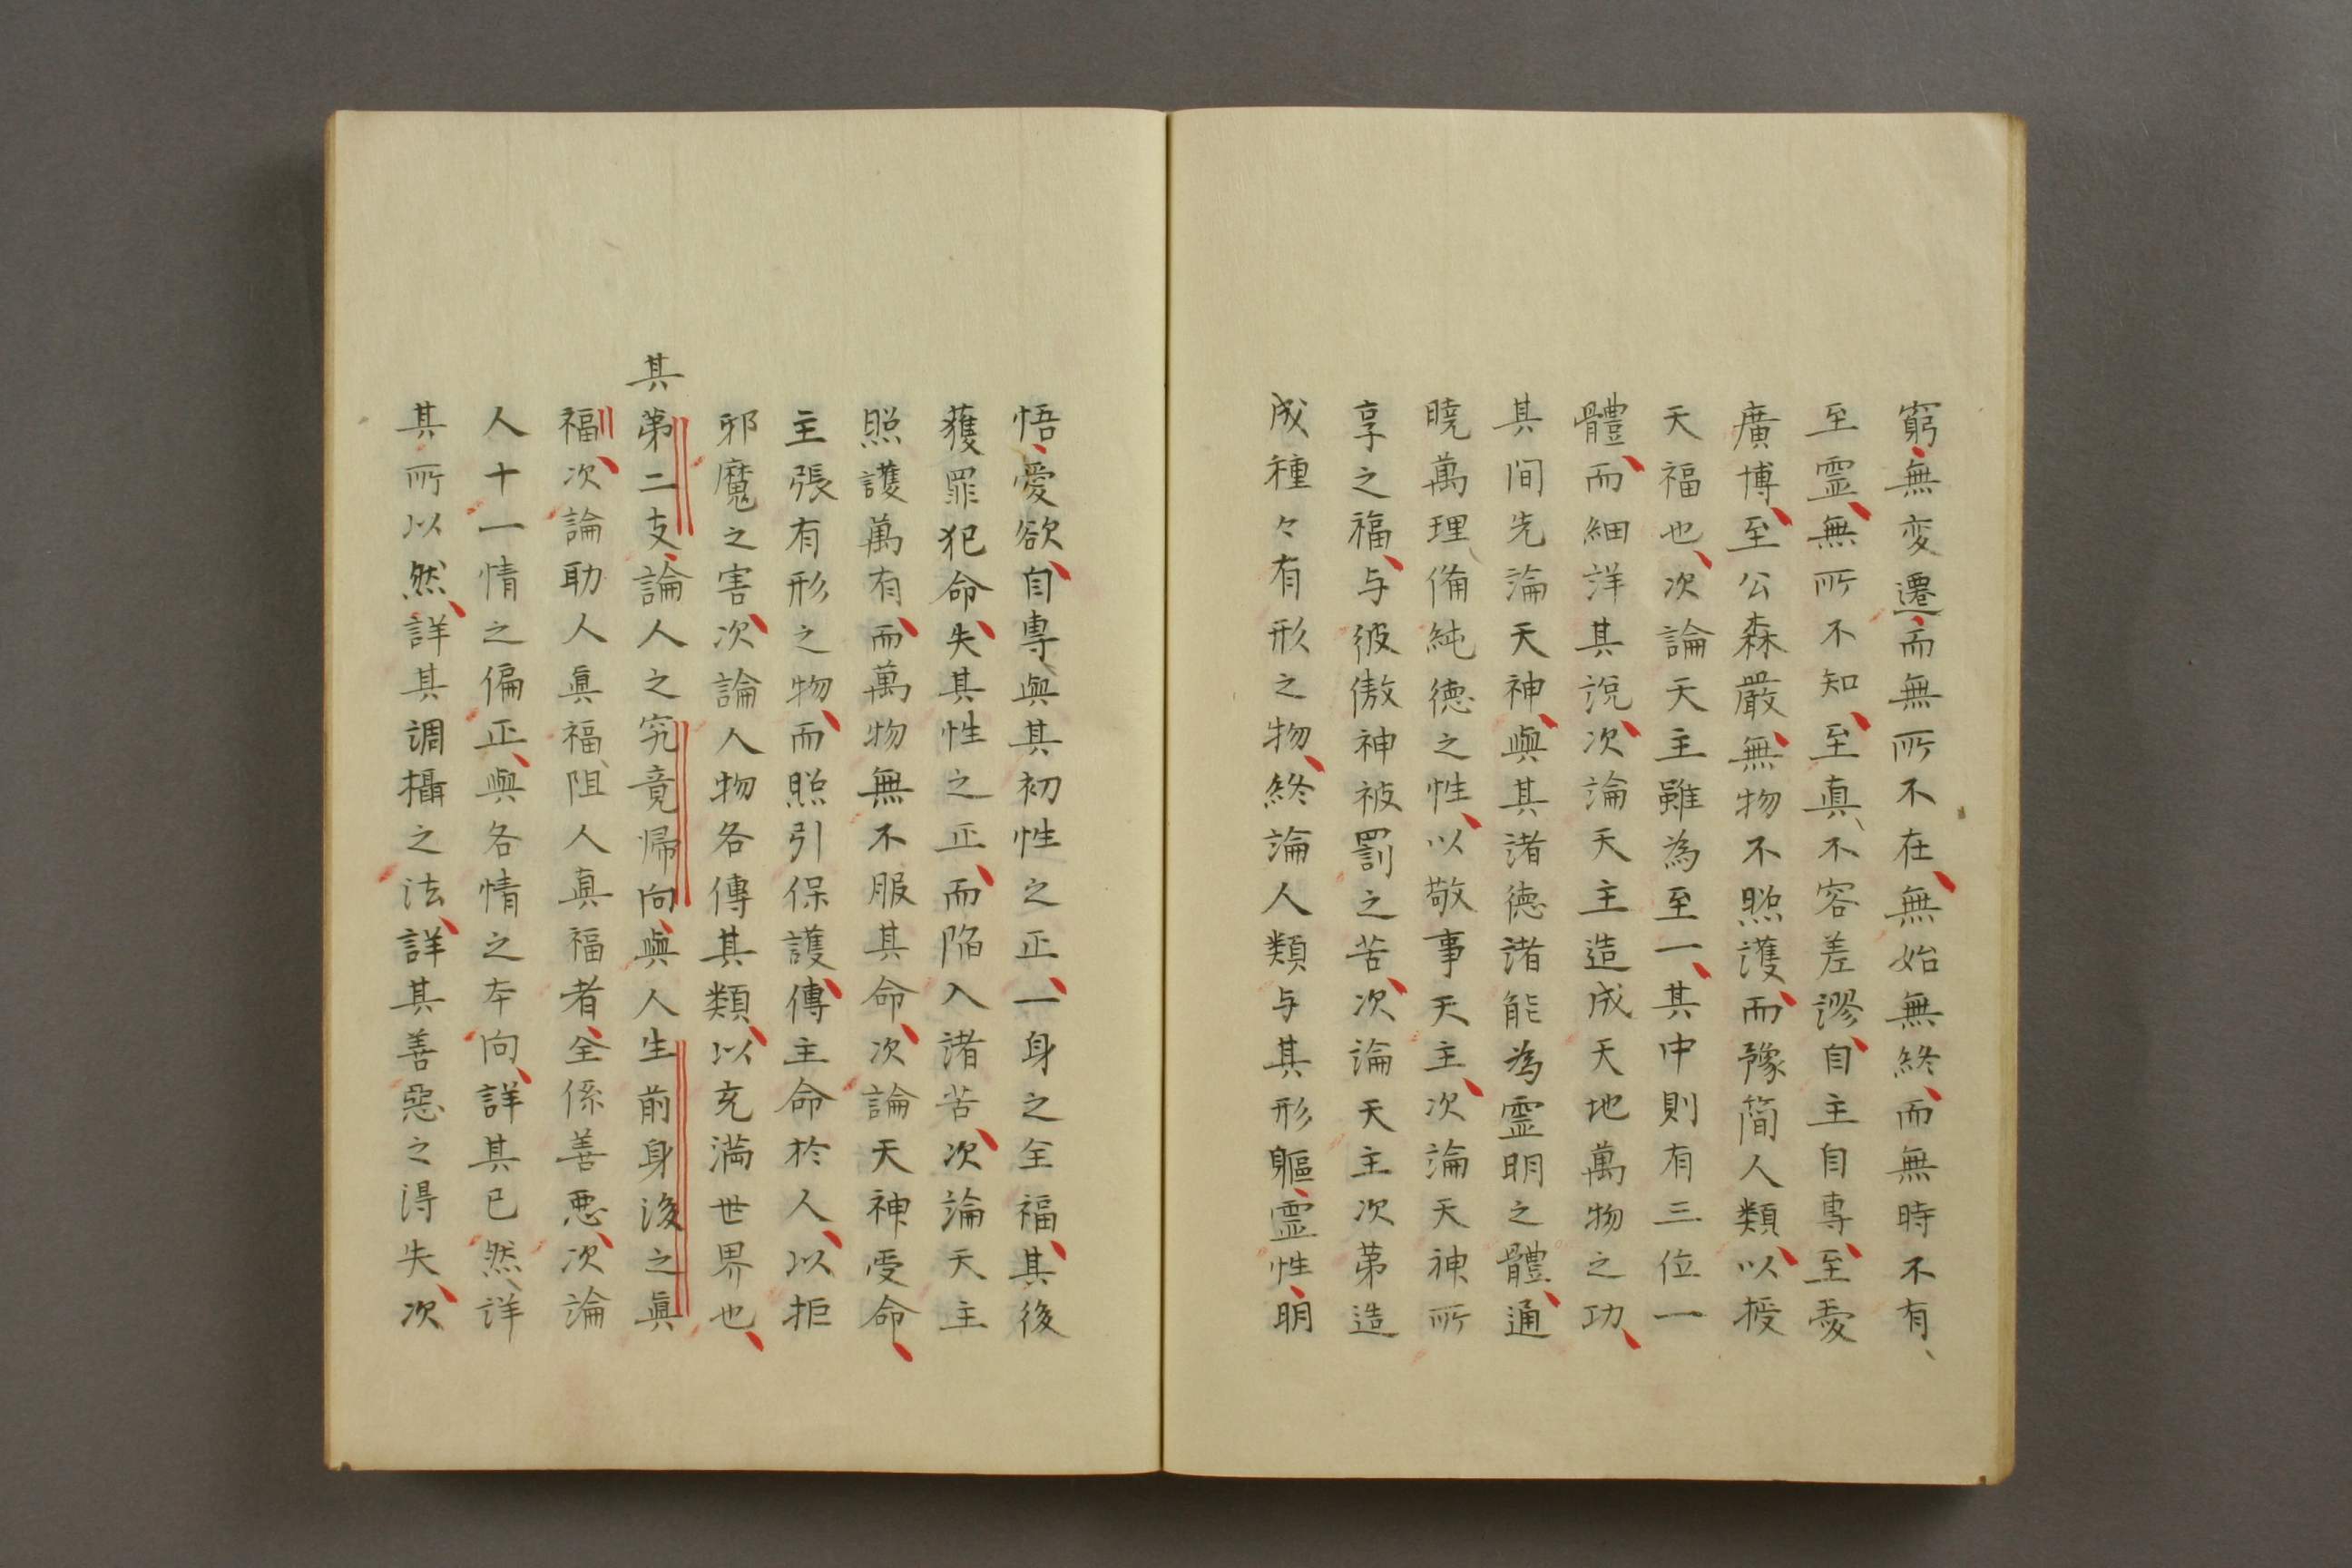 窮、無変遷、而無所不在、無始無終、而無時不有、
至霊、無所不知、至真、不容差謬、自主自専、至愛
廣博、至公森嚴、無物不照護、而豫簡人類、以授
天福也、次論天主雖為至一、其中則有三位一
體、而細詳其說、次論天主造成天地萬物之功、
其间先論天神、與其諸德諸能為霊明之體、通
曉萬理、俻純德之性、以敬事天主、次論天神所
享之福、与彼傲神被罰之苦、次論天主次第造
成種々有形之物、終論人類与其形軀、霊性、明
悟、愛欲、自専、與其初性之正、一身之全福、其後
獲罪犯命、失其性之正、而陷入諸苦、次論天主
照護萬有、而萬物無不服其命、次論天神受命、
主張有形之物、而照引保護、傳主命於人、以拒
邪魔之害、次論人物各傳其類、以充滿世界也、
其第二支、論人之究竟帰向、與人生前身後之眞
福、次論助人眞福、阻人眞福者、全係善悪、次論
人十一情之偏正、與各情之本向、詳其已然、詳
其所以然、詳其調攝之法、詳其善惡之得失、次